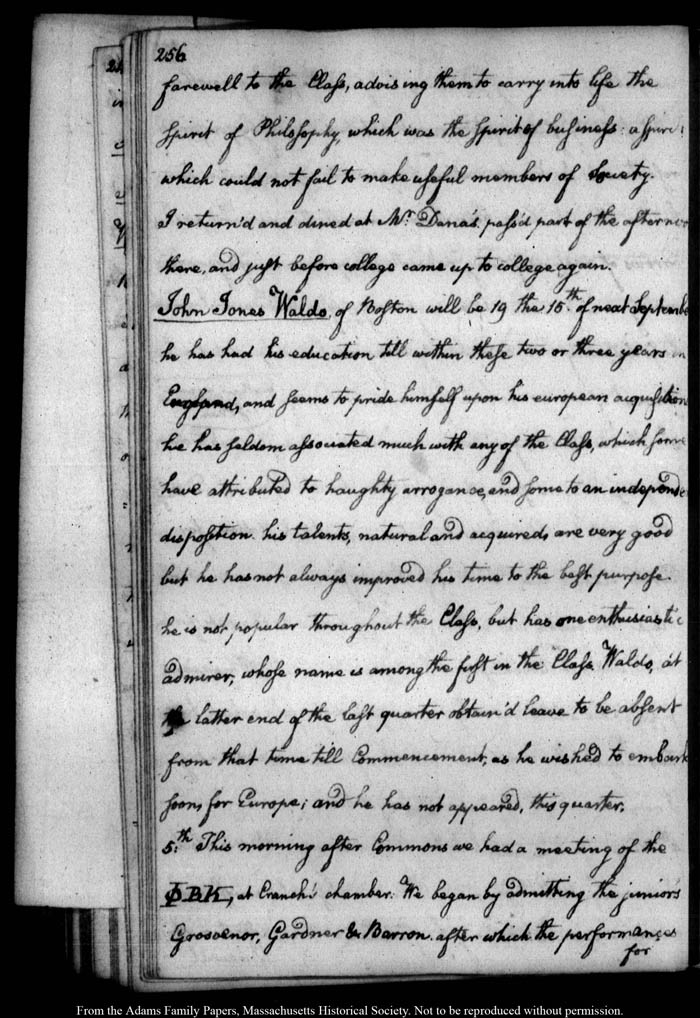 256
farewell to the Class, advising them to carry into life the
spirit of Philosophy, which was the spirit of business: a spiri
which could not fail to make useful members of Society.
I return'd and dined at Mr. Dana's, pass'd part of the afterno
there, and just before college came up to college again.
John Jones Waldo, of Boston will be 19 the 15th. of next Septembe
he has had his education till within these two or three years in
England, and seems to pride himself upon his european acquisitions
he has seldom associated much with any of the Class, which some
have attributed to haughty arrogance, and some to an independe
disposition. his talents, natural and acquired, are very good
but he has not always improved his time to the best purpose.
he is not popular throughout the Class, but has one enthusiastic
admirer, whose name is among the first in the Class. Waldo, at
the latter end of the last quarter obtain'd leave to be absent
from that time till Commencement, as he wished to embark
soon, for Europe; and he has not appeared, this quarter.
5.th This morning after Commons we had a meeting of the
ΦBK, at Cranch's chamber. We began by admitting the junior's
Grosvenor, Gardner & Barron. after which the performances
for
From the Adams Family Papers, Massachusetts Historical Society. Not to be reproduced without permission.